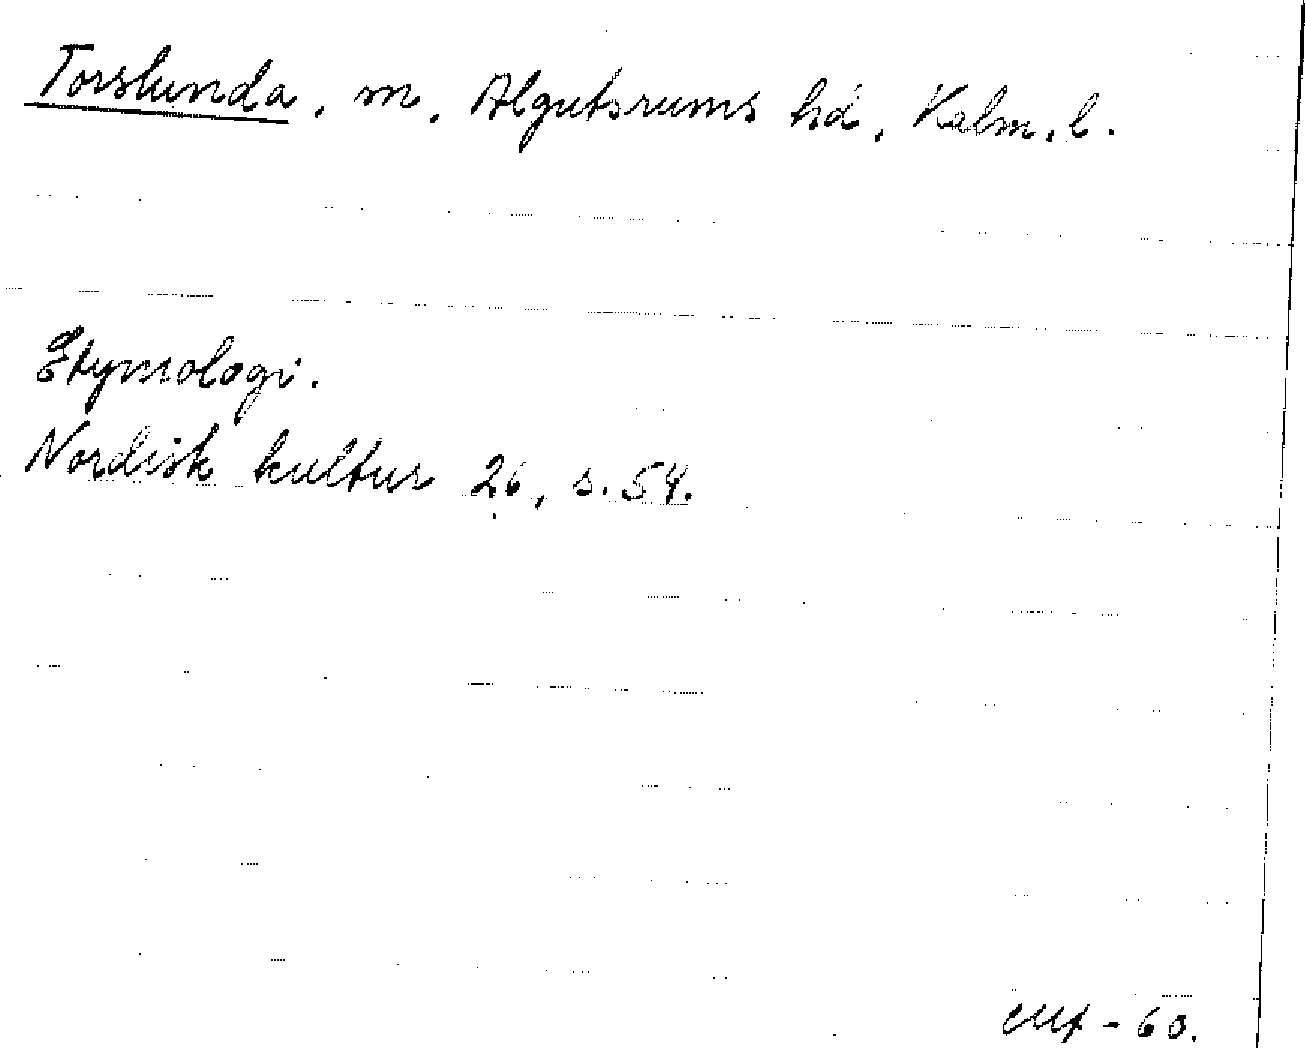 Torslunda, m, Algutsrums hd, Kalm. l.
Etymologi.
Nordisk kultur 26, s. 54.
- 60.